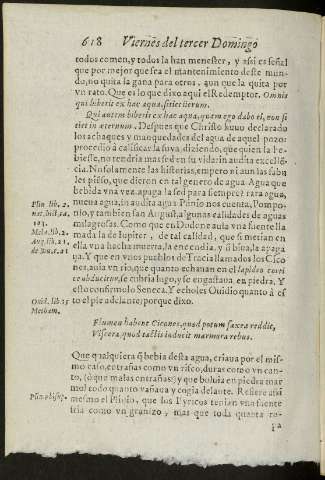 618 Viernes del tercer Domingo
todos comen, y todos la han menester, y assi es señal
que por mejor que sea el mantenimiento deste mun-
do, no quita la gana para otros, aun que la quita por
vn rato. Que es lo que dixo aqui el Redemptor. Omnis
qui biberit ex hac aqua, sitiet iterum.
Qui autem biberit ex hac aqua, quam ego dabo ei, non si
tiet in æternum. Despues que Christo huuo declarado
los achaques y manquedades del agua de aquel pozo:
procedio â calificar la suya, diziendo, que quien la be-
biesse, no tendria mas sed en su vida: in audita excelẽ-
cia. No solamente las historias, empero ni aun las fabu
las pienso, que dieron en tal genero de agua. Agua que
bebida vna vez apaga la sed para siempre? rara agua,
nueua agua, in audita agua Plinio nos cuenta, Pompo-
nio, y tambien san August, algunas calidades de aguas
milagrosas. Como que en Dodene auia vna fuente lla
mada la de Iupiter, de tal calidad, que si metian en
ella vna hacha muerta, la encendia, y si biua, la apaga
ua. Y que en vnos pueblos de Tracia llamados los Cico
nes, auia vn rio, que quanto echauan en el lapideo corti
ce obducitur, se cubria luego, y se engastaua en piedra. Y
esto confirmolo Seneca. Y echoles Ouidio quanto â es
to el pie adelante, porque dixo.
Flumen habent Cicones, quod potum saxea reddit,
Viscera, quod tactis inducit marmora rebus.
Que qualquiera q̃ bebia desta agua, criaua por el mis-
mo caso, entrañas como vn risco, duras como vn can-
to, (ò que malas entrañas) y que boluia en piedra mar
mol todo quanto vañaua y cogia delante. Refiere assi
mesmo el Plinio, que los
tenian vna fuente
fria como vn granizo, mas que toda quanta
Plin. lib. 2.
nat. hist. ca.
103.
Mela. lib. 2.
Aug. lib. 21.
de
Ouid. lib. 15
Metham.
Plin. vbi sup.